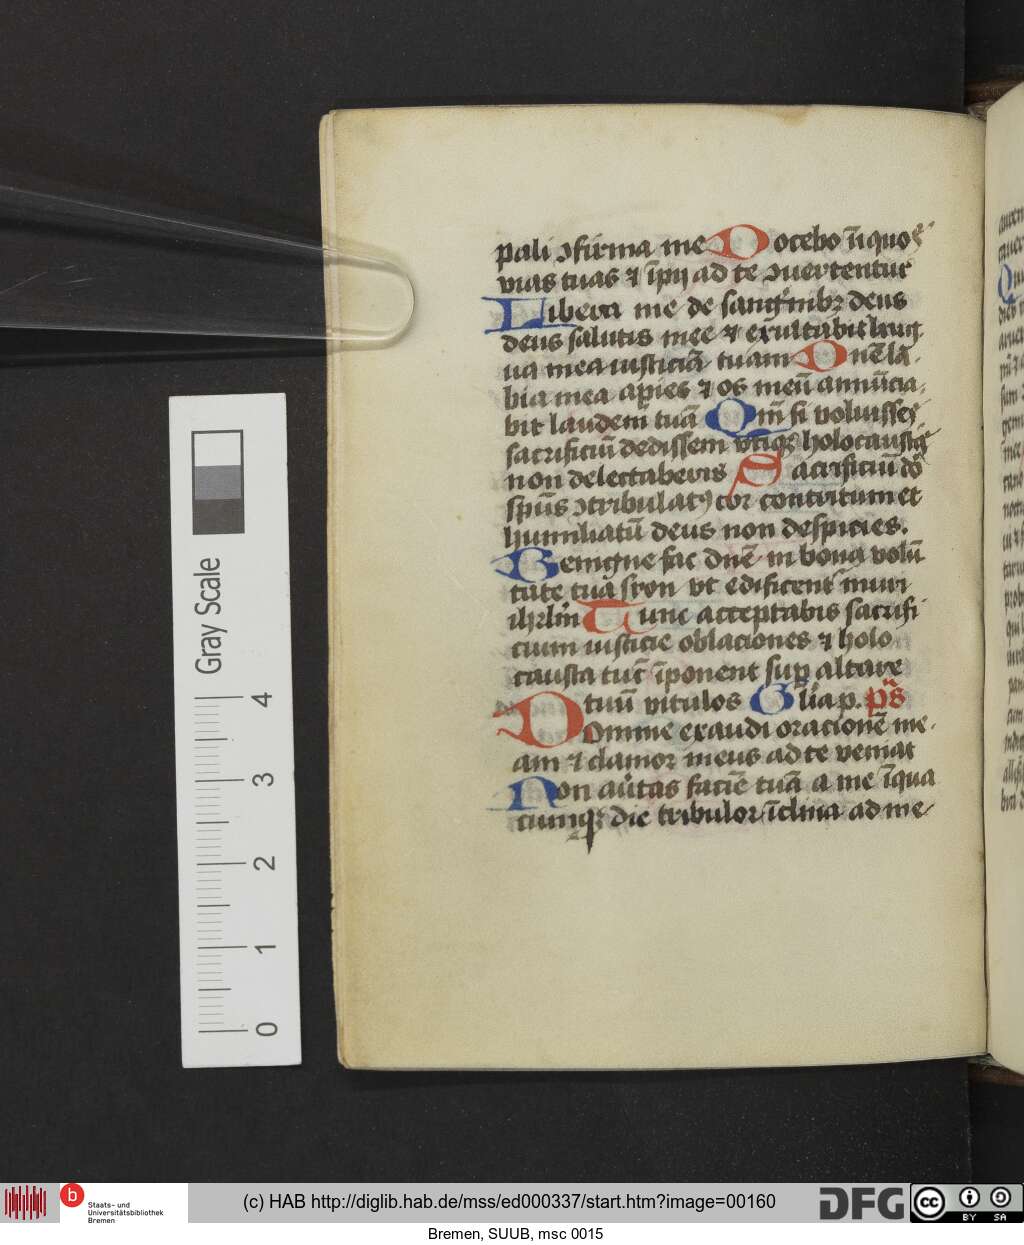 pali ↄfirma me Docebo īiquos
vias tuas ⁊ īpij ad te ↄuertentur
Libera me de sang'nibꝫ deus
deus salutis mee ⁊ exultabit ling
ua mea iusticiā tuam Dn̄e la
bia mea apies ⁊ os meū annūcia
bit laudem tuā Qm̄ si voluisses
sacrificiū dedissem vtiqꝫ holocaustꝭ
non delectaberis Sacrificiū dō
sp̄us ↄtribulatꝰ cor contritum et
humiliatū deus non despicies.
Benigne fac dn̄e in bona volū
tate tua syon vt edificent᷑ muri
ihrl̄m Tunc acceptabis sacrifi
cium iusticie oblaciones ⁊ holo
causta tūc īponent sup altare
tuū vitulos Gl̄ia p. p̄s
Domine exaudi oracionē me
am ⁊ clamor meus ad te veniat
Non au̾tas faciē tuā a me īqua
cumqꝫ die tribulor īclina ad me
Gray Scale
4
3
2
1
0
b
Staats- und
Universitätsbibliothek
Bremen
(c) HAB http://diglib.hab.de/mss/ed000337/start.htm?image=00160
DFG
cc
BY SA
Bremen, SUUB, msc 0015